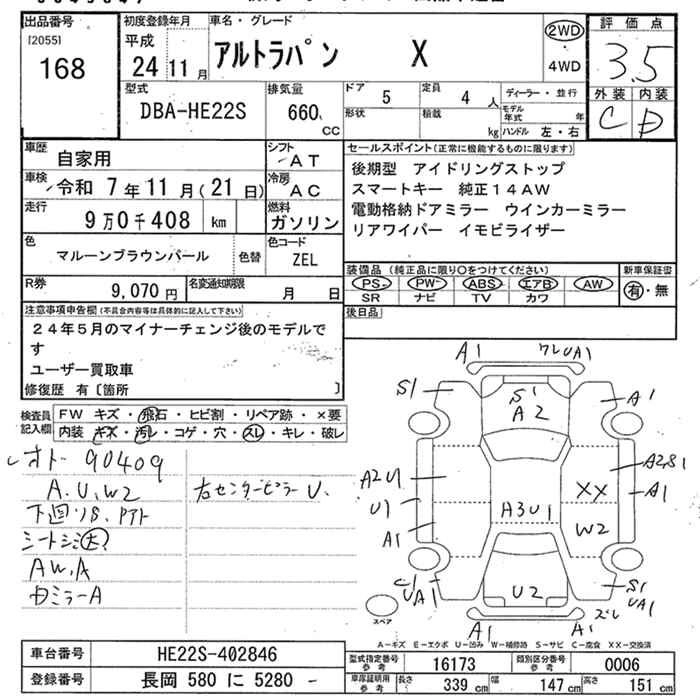 出品番号 初度登録年月 車名・グレード 評価点
[2055]
168
平成
24 11 月
アルトラパン X
2WD
4WD
3.5
型式 排気量 ドア 定員 ディーラー・並行 外装 内装
DBA-HE22S 660 CC
5 4 人
形状 積載 kg
モデル年式 年
ハンドル 左・右
C D
車歴 自家用 シフト AT
車検 令和 7年11月(21日) 冷房 AC
走行 9万0千408 km 燃料 ガソリン
色 マルーンブラウンパール 色替 色コード ZEL
R券 9,070 円 名変通知期限 月 日
セールスポイント(正常に機能するものに限ります)
後期型 アイドリングストップ
スマートキー 純正14AW
電動格納ドアミラー ウインカーミラー
リアワイパー イモビライザー
装備品(純正品に限り○をつけてください) 新車保証書
PS PW ABS エアB AW 有・無
SR ナビ TV カワ
後日品
注意事項申告欄(不具合内容等は具体的に記入して下さい)
24年5月のマイナーチェンジ後のモデルで
す
ユーザー買取車
修復歴 有〔箇所 〕
検査員記入欄
FW キズ・飛石・ヒビ割・リペア跡・×要
内装 キズ・汚レ・コゲ・穴・スレ・キレ・破レ
オドー 90409
A.U.W2 右センターピラーU.
下廻りS.
シートシミ大
AW.A
ミラーA
A1 ワレUA1
S1 S1 A1
A2
A2U1 A2S1
U1 A1
XX
A3U1
W2
A1
UA1 U2 S1
UA1
A1 A1 ズレ
スペア
A-キズ E-エクボ U-凹み W-補修跡 S-サビ C-腐食 XX-交換済
車台番号 HE22S-402846
登録番号 長岡 580 に 5280
型式指定番号参考 16173 類別区分番号参考 0006
車庫証明用参考 長さ 339 cm 幅 147 cm 高さ 151 cm